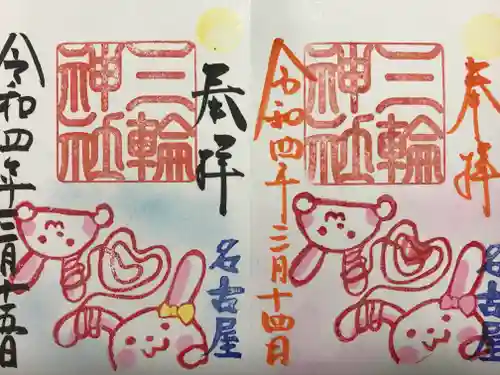 奉拝
三輪
神社
名古屋
令和四年三月十四日
奉拝
三輪
神社
名古屋
令和四年三月十五日